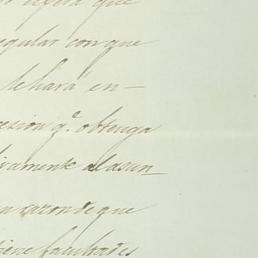 que
egular con que
se hará en-
cesion q.e obtenga
ivamente al asun-
en razon de que
tiene facultades